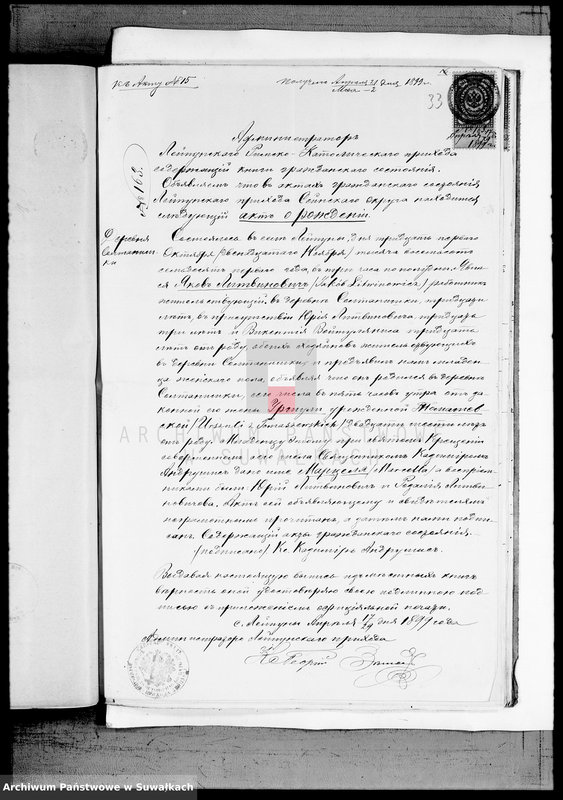 Къ Акту № 15
Получено Апрѣля 21 дня 1899 г.
Мая - 2
33
1899
Администраторъ
Лейпунскаго Римско-Католическаго прихода
содержащій книги гражданскаго состоянія.
Объявляетъ что въ актахъ гражданскаго состоянія
Лейпунскаго прихода Сейнскаго округа находится
слѣдующій актъ о рожденіи.
Деревня
Состоялось въ селѣ Лейпуны, дня тридцать перваго
Октября /двѣнадцатаго Ноября/ тысяча восемьсотъ
семьдесятъ перваго года, въ три часа по полудни. Явил-
ся Яковъ Литвиновичъ /Jakób Litwinowicz/ работникъ
жительствующій въ деревни тридцати
лѣтъ, въ присутствіи Юрія Литвиновича тридцать
три лѣтъ и Викентія Войтулянца тридцать
лѣтъ отъ роду, обоихъ хозяевъ жительствующихъ
въ деревни и предъявилъ намъ младен-
ца женскаго пола, объявляя что онъ родился въ деревни
сего числа въ пять часовъ утра отъ за-
конной его жены Уршули урожденной
/Urszuli z / двадцати шести лѣтъ
отъ роду. Младенцу этому при святомъ Крещеніи
совершенномъ сего числа Священникомъ Казимиромъ
Андрушисъ дано имя Марцелла /Marcella/ а воспріем-
никами были Юрій Литвиновичъ и Розалія Литви-
новичова. Актъ сей объявляющему и свидѣтелямъ
неграмотнымъ прочитанъ, а затѣмъ нами подпи-
санъ. Содержащій акты гражданскаго состоянія.
/подписано/ Кс. Казимиръ Андрушисъ.
Выдавая настоящую выпись изъ мѣстныхъ книгъ
вѣрность оной удостовѣряю своею подлинною под-
писью съ приложеніемъ оффиціальной печати.
с. Лейпуны Апрѣля 17/29 дня 1899 года
Администраторъ Лейпунскаго прихода
Кс. Георгій
ARCHIWUM PAŃSTWOWE
W SUWAŁKACH
Archiwum Państwowe w Suwałkach